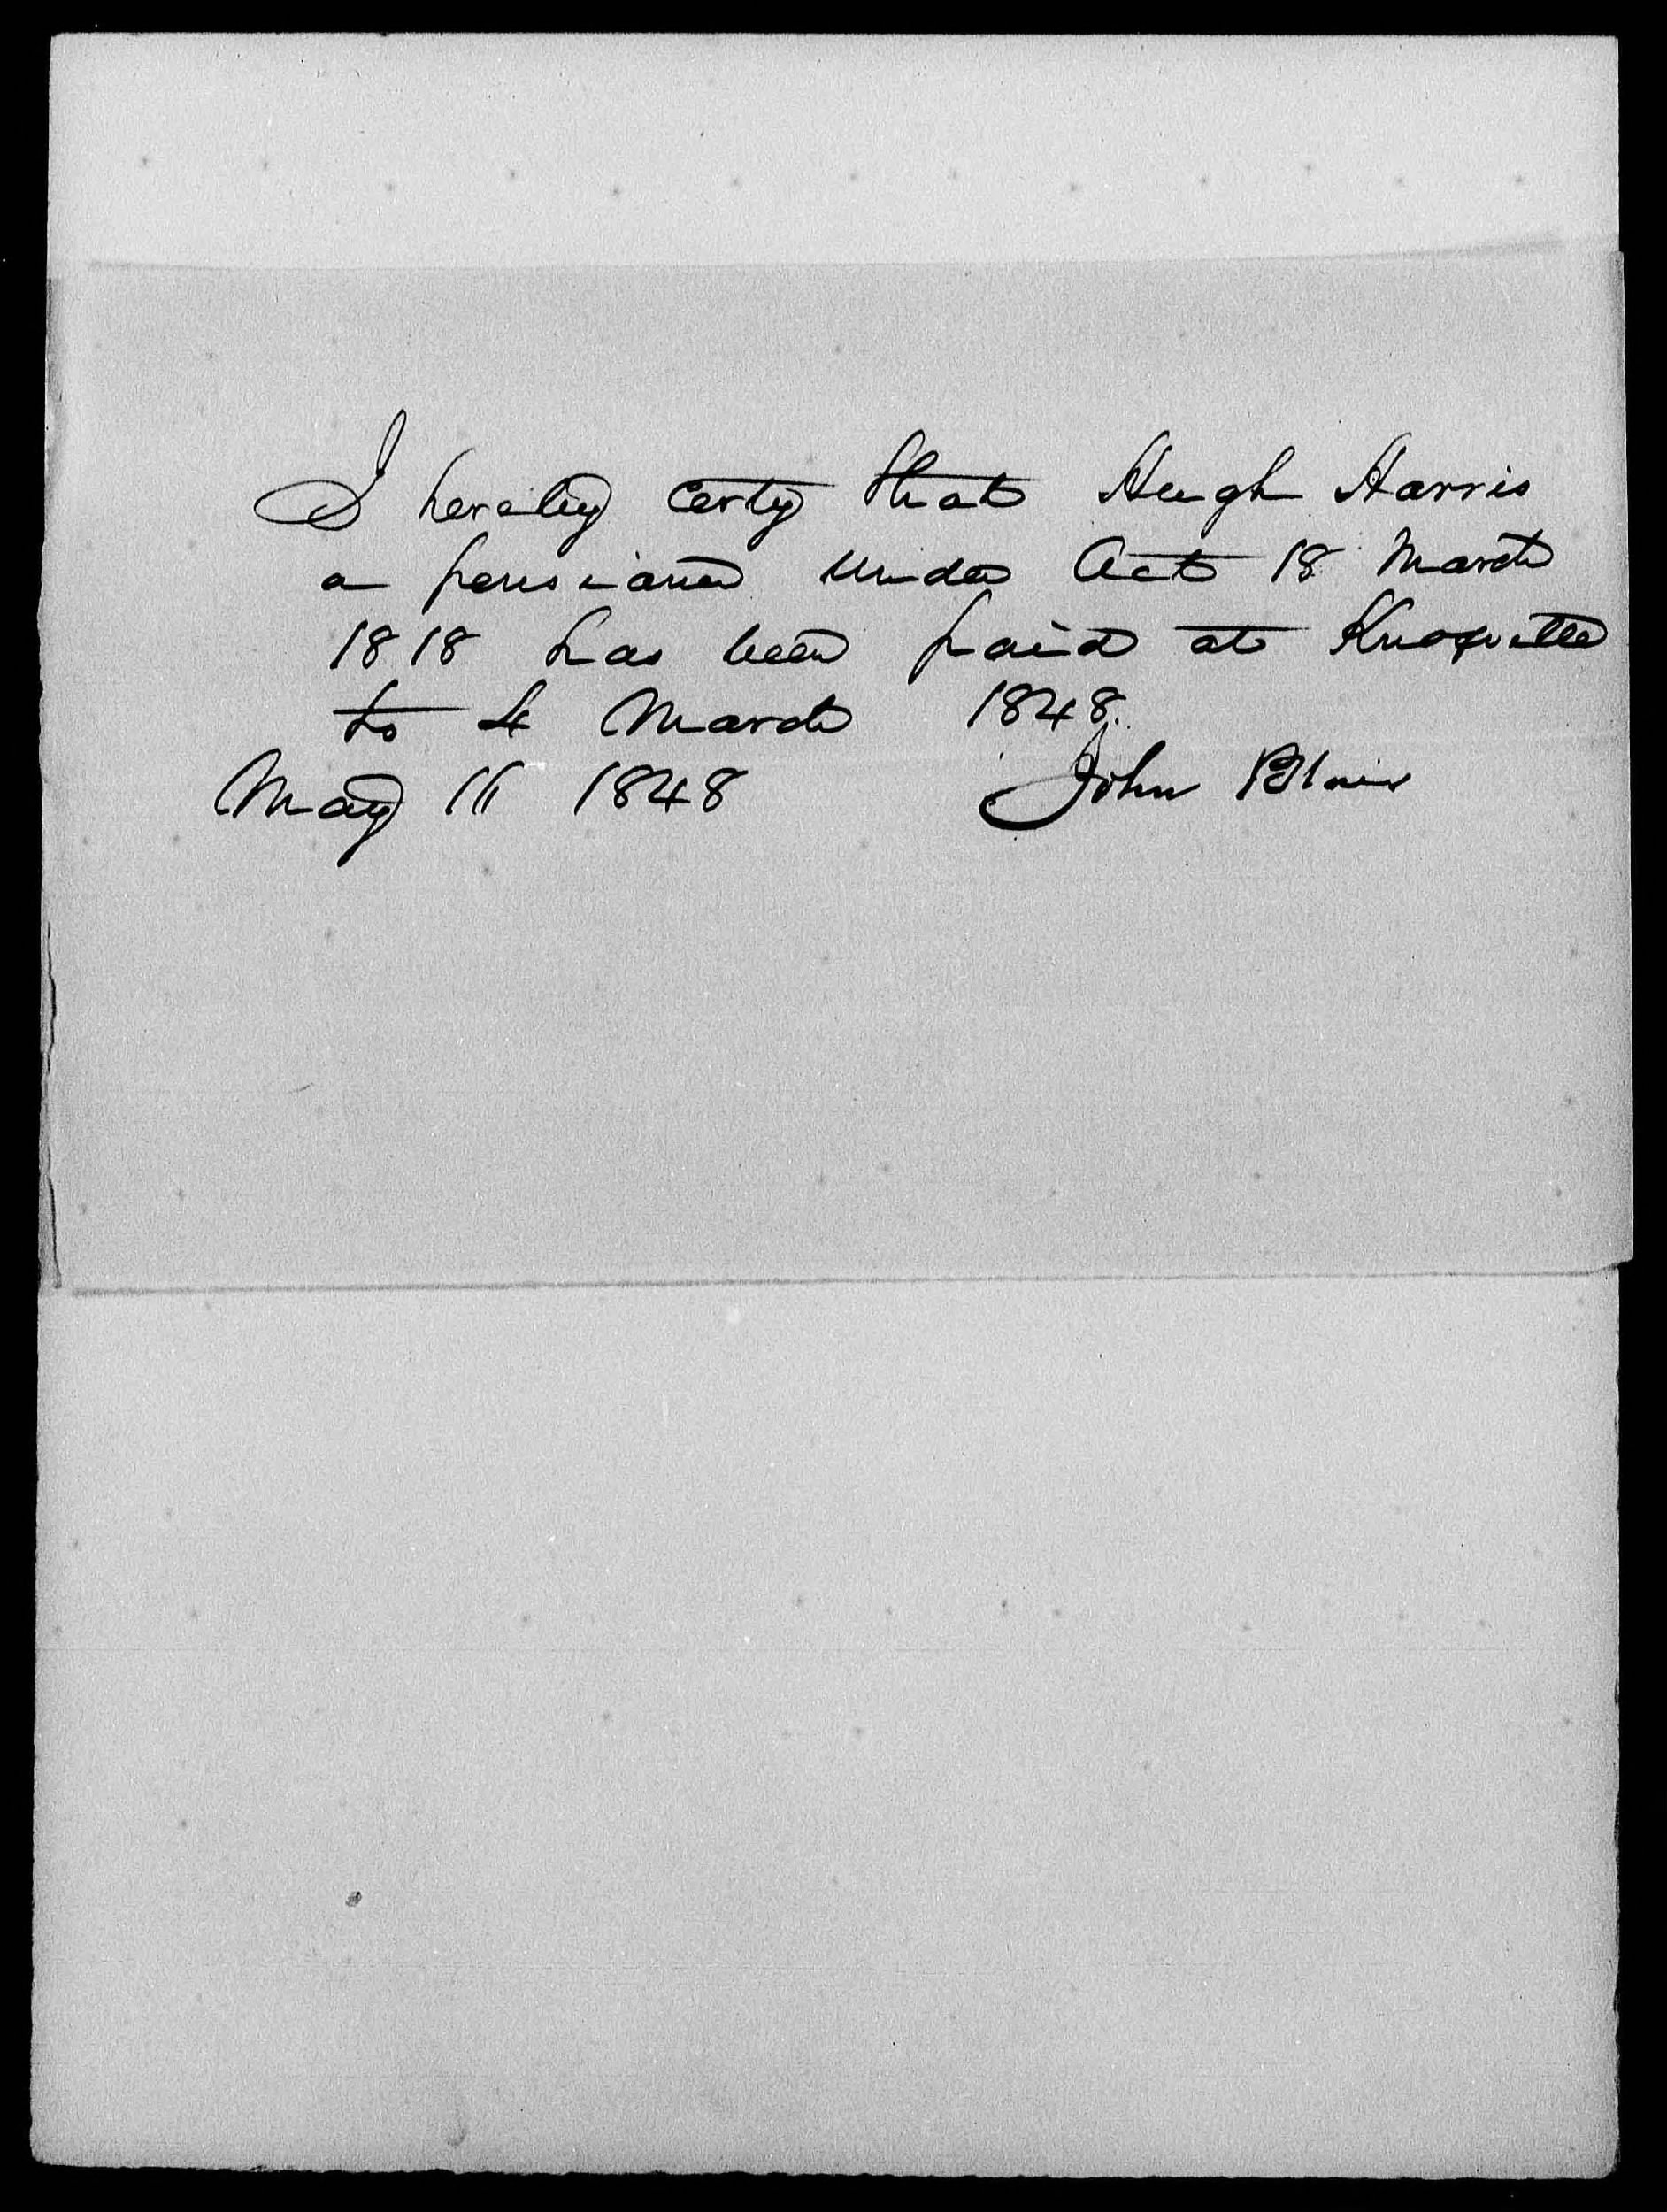 I hereby certy that Hugh Harris
a pensioner under Act 18 March
1818 has been paid at Knoxville
to 4 March 1848.
May 11 1848 John Blair